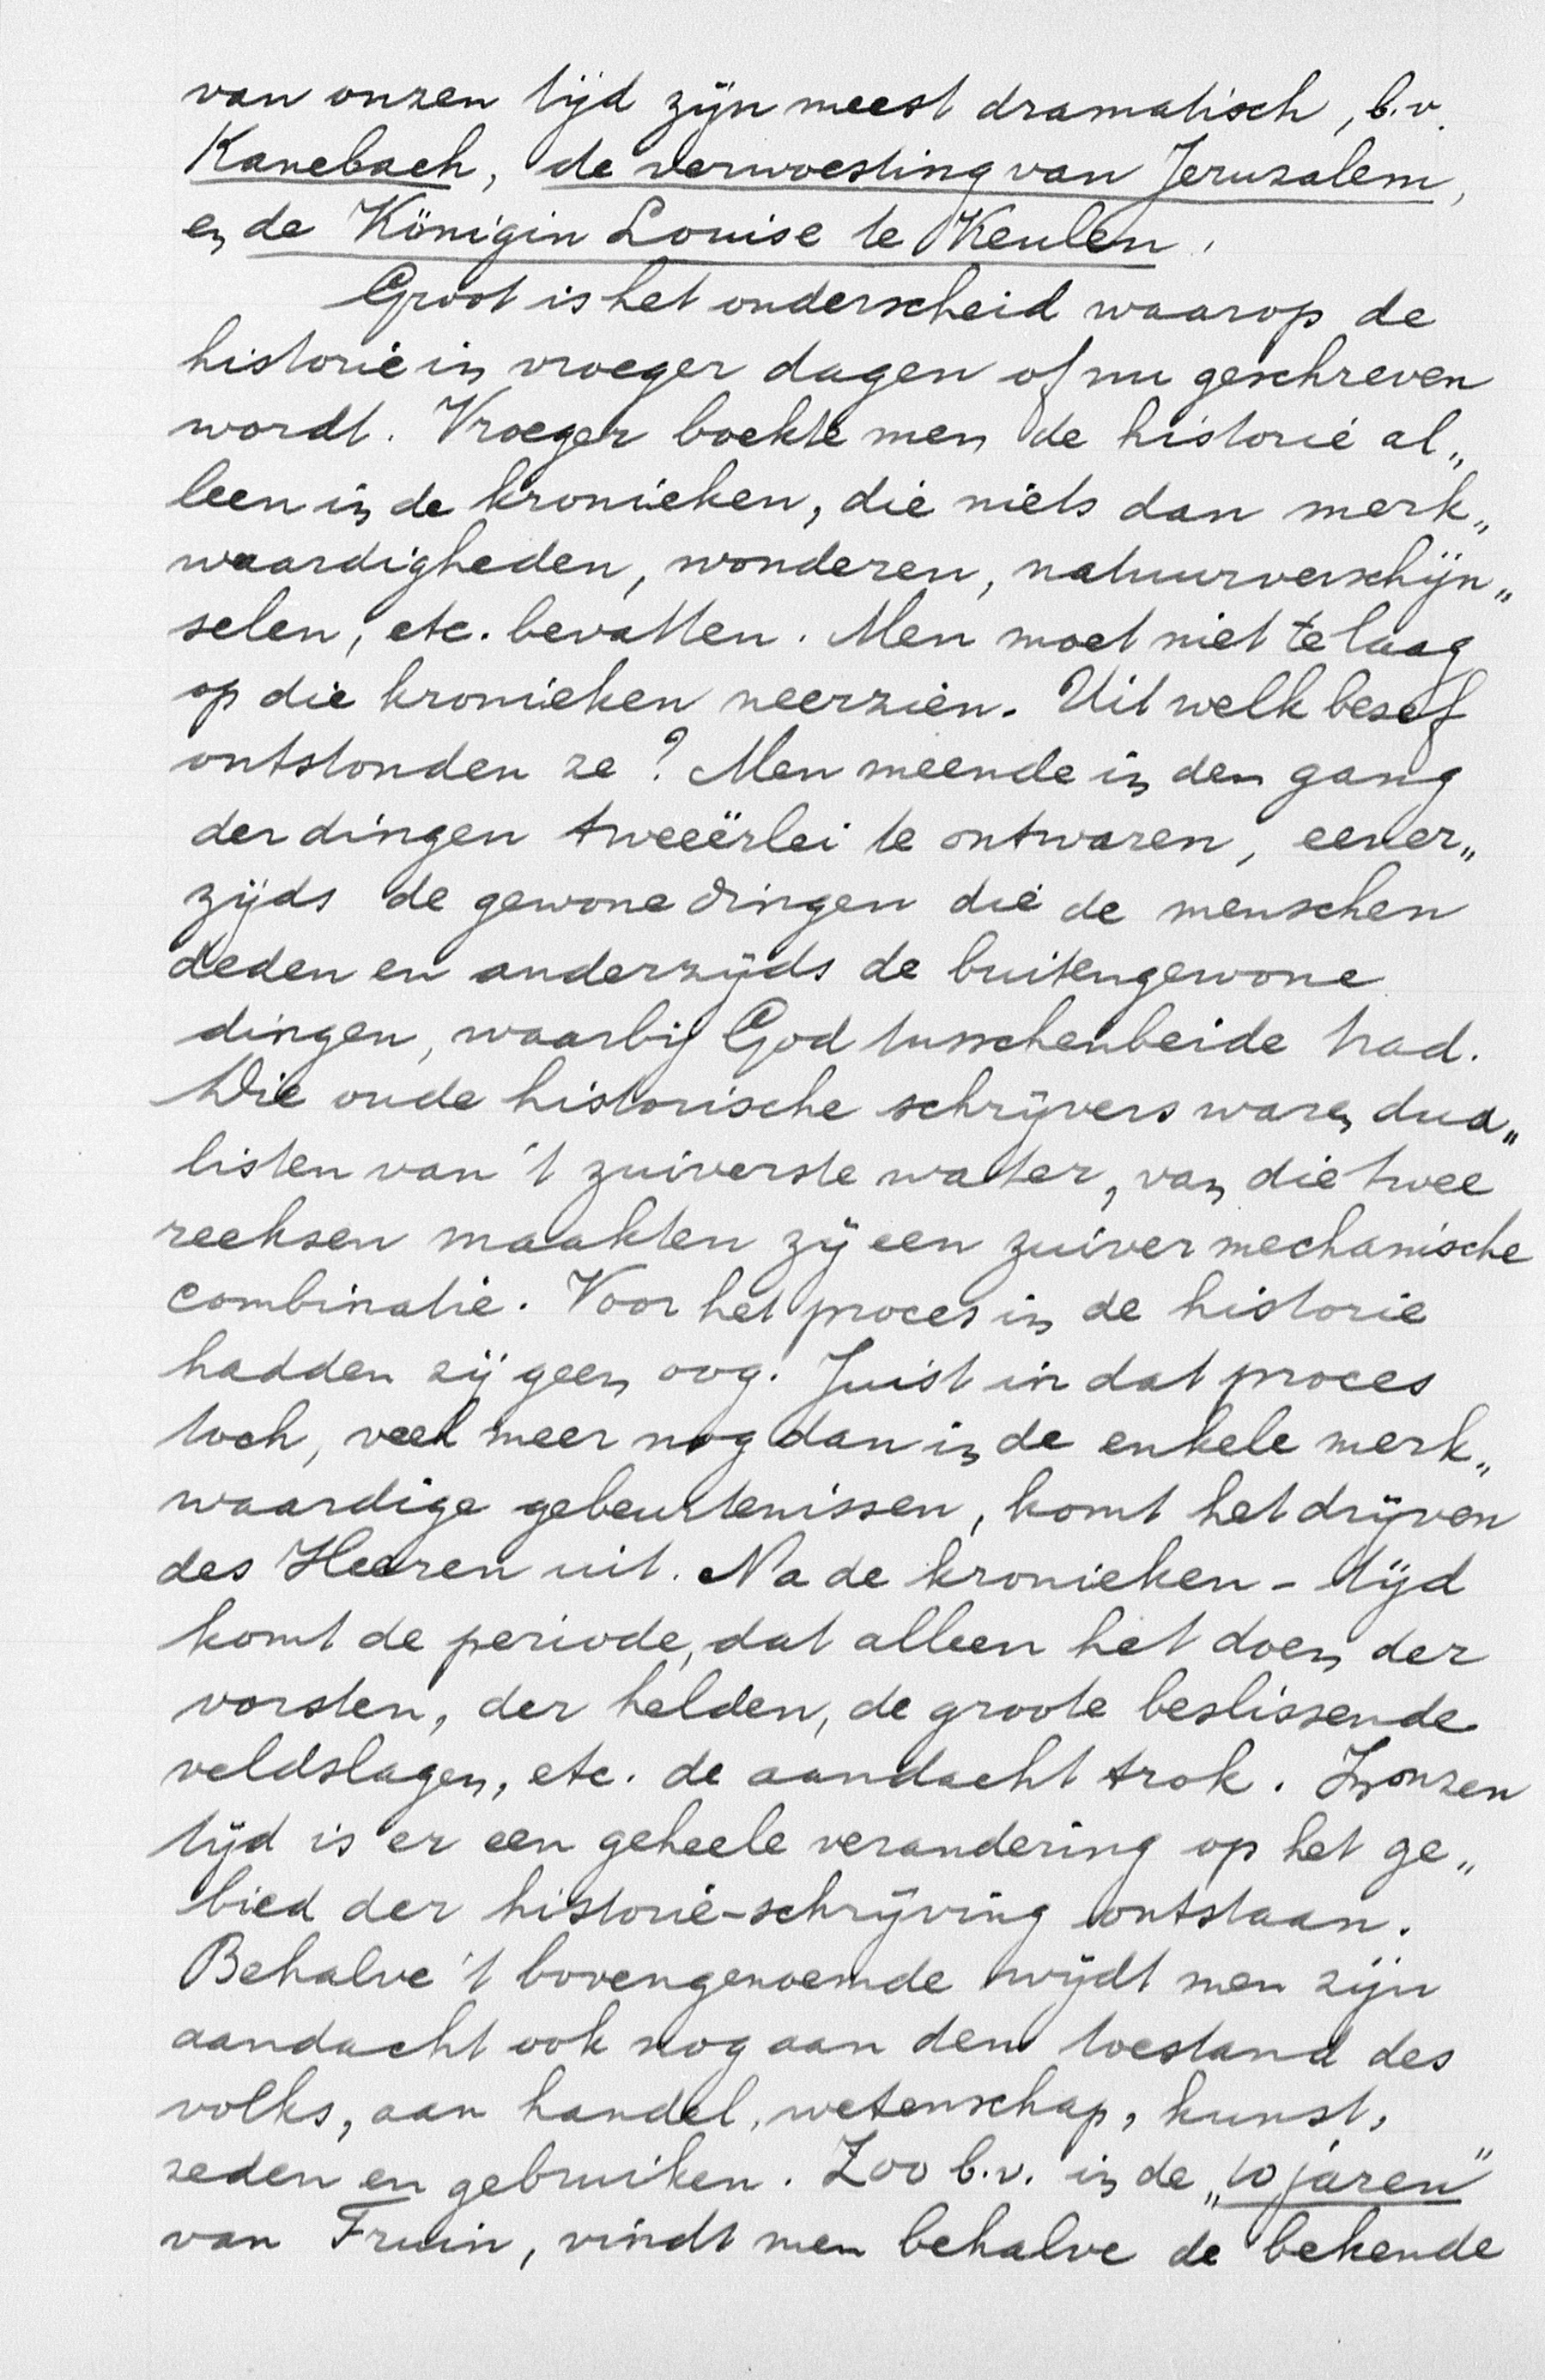 van onzen tijd zijn meest dramatisch, b.v.
Kanebach, de verwoesting van Jeruzalem,
en de Königin Louise te Keulen.
Groot is het onderscheid waarop de
historie in vroeger dagen of nu geschreven
wordt. Vroeger boekte men de historie al„
leen in de kronieken, die niets dan merk„
waardigheden, wonderen, natuurverschijn„
selen, etc. bevatten. Men moet niet te laag
op die kronieken neerzien. Uit welk besef
ontstonden ze? Men meende in den gang
der dingen tweeërlei te ontwaren, eener„
zijds de gewone dingen die de menschen
deden en anderzijds de buitengewone
dingen, waarbij God tusschenbeide trad.
Die oude historische schrijvers waren dua„
listen van 't zuiverste water, van die twee
reeksen maakten zij een zuiver mechanische
combinatie. Voor het proces in de historie
hadden zij geen oog. Juist in dat proces
toch, veel meer nog dan in de enkele merk„
waardige gebeurtenissen, komt het drijven
des Heeren uit. Na de kronieken - tijd
komt de periode, dat alleen het doen der
vorsten, der helden, de groote beslissende
veldslagen, etc. de aandacht trok. In onzen
tijd is er een geheele verandering op het ge„
bied der historie-schrijving ontstaan.
Behalve 't bovengenoemde wijdt men zijn
aandacht ook nog aan den toestand des
volks, aan handel, wetenschap, kunst,
zeden en gebruiken. Zoo b.v. in de „10 jaren"
van Fruin, vindt men behalve de bekende